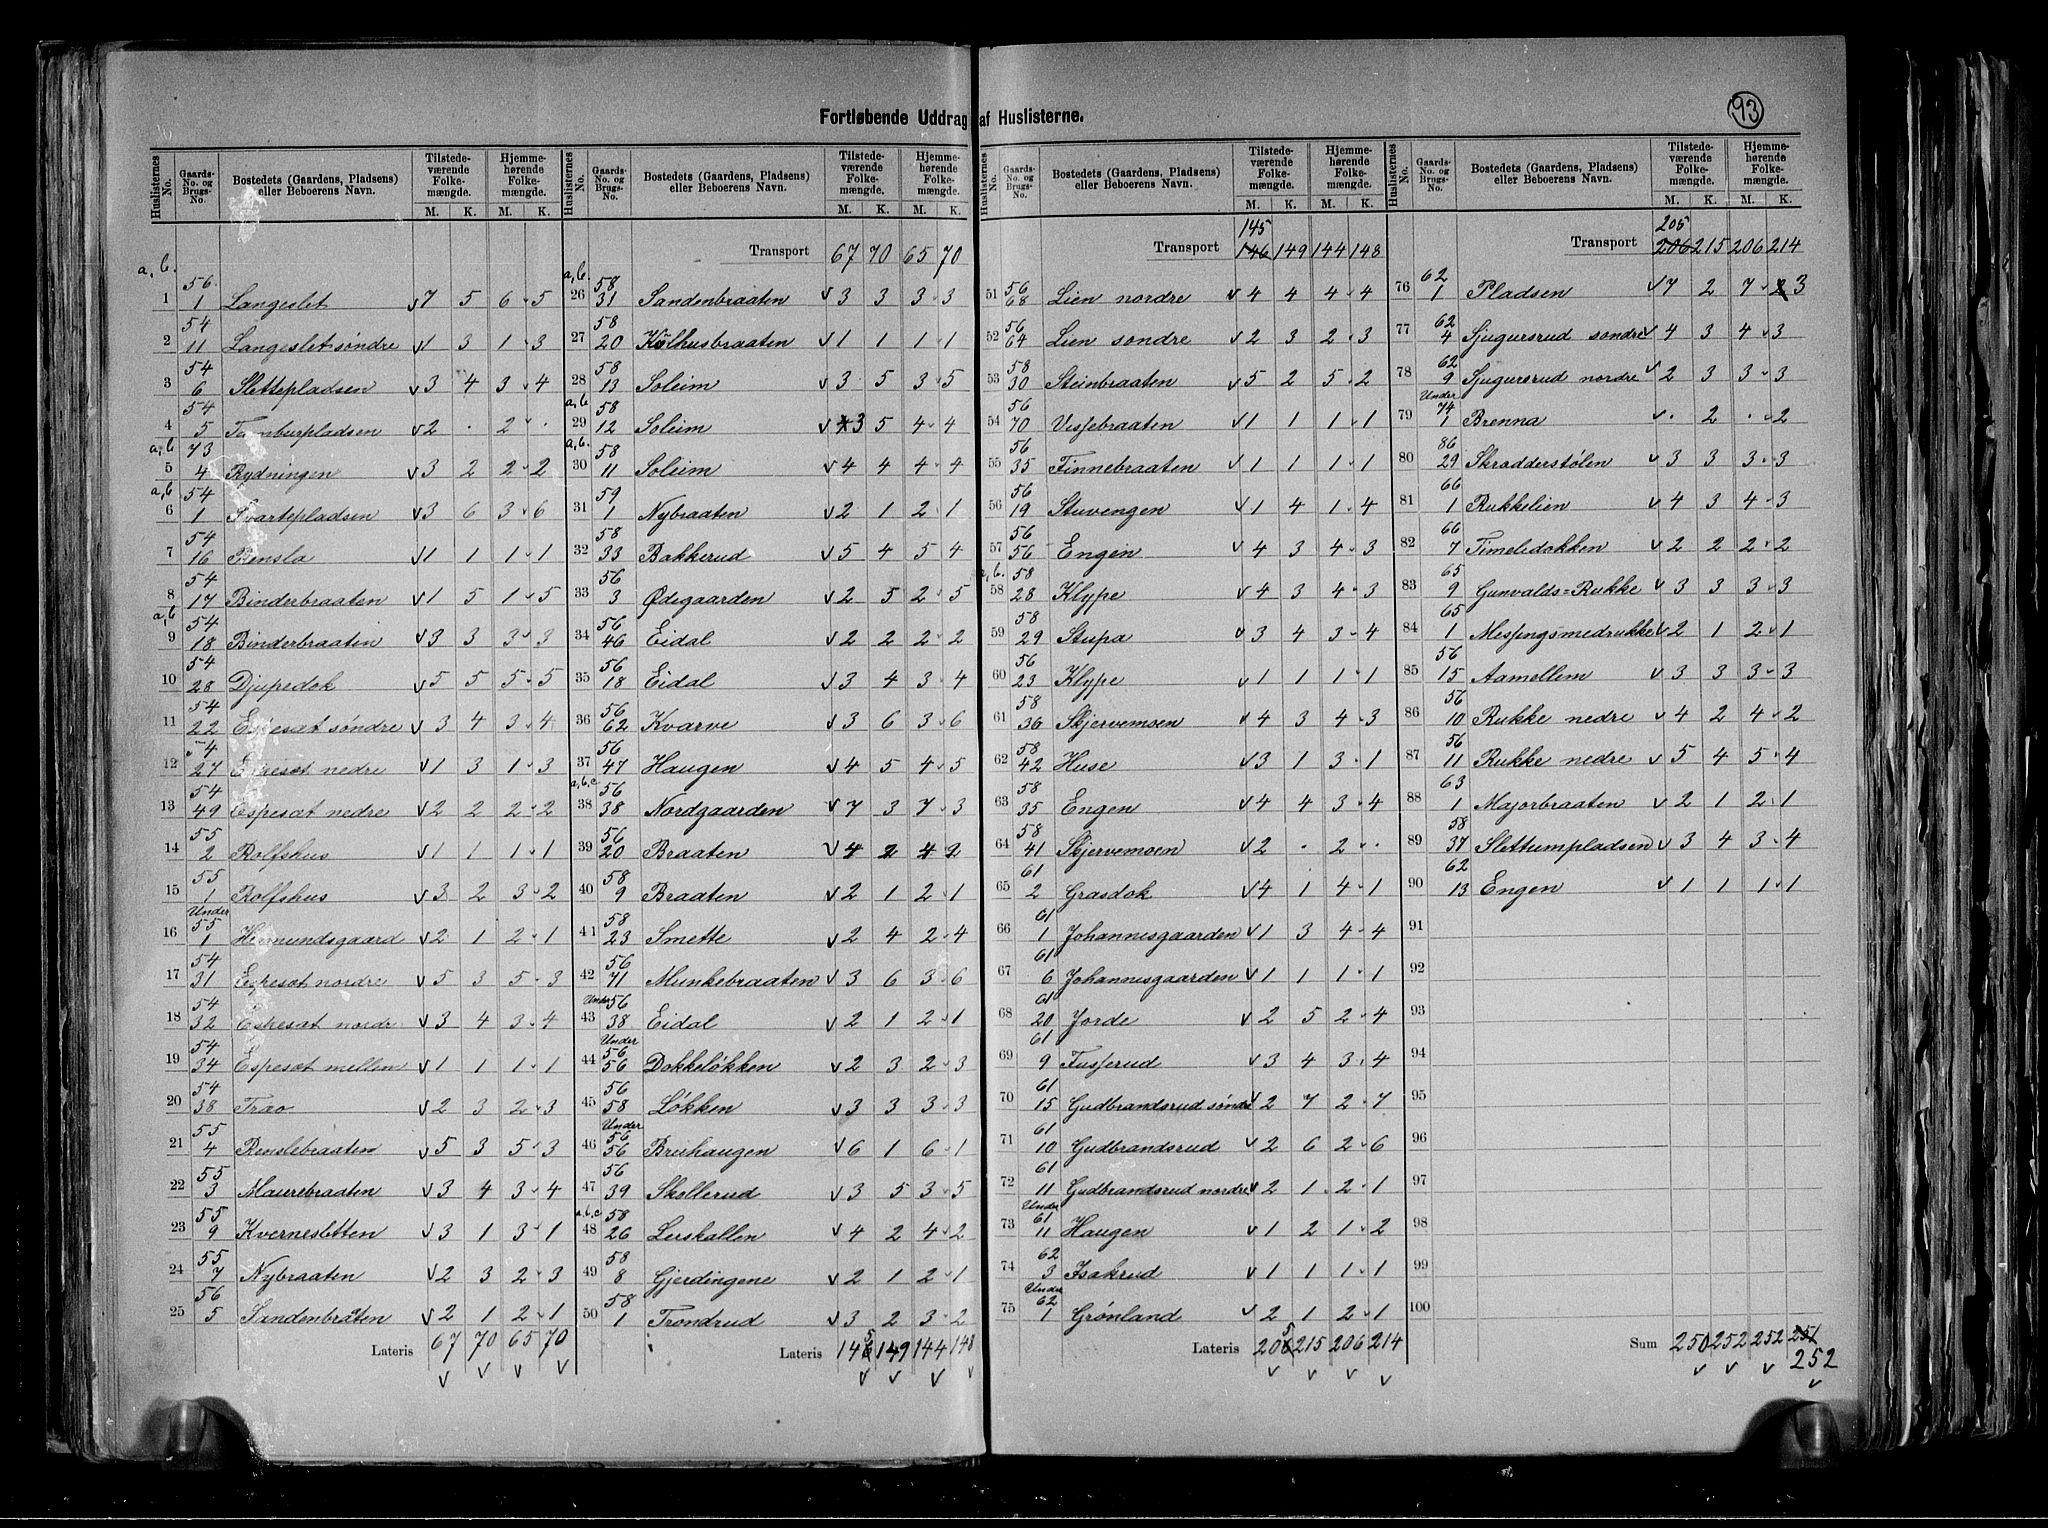 93
Fortløbende Uddrag af Huslisterne.
Huslisternes No. | Gaards-No. og Brugs-No. | Bostedets (Gaardens, Pladsens) eller Beboerens Navn. | Tilstedeværende Folkemængde. M. K. | Hjemmehørende Folkemængde. M. K.
a, b. 1 56/1 Langeslet v 7 5 6 5
2 54/11 Langeslet søndre v 1 3 1 3
3 54/6 Slettepladsen v 3 4 3 4
4 54/5 v 2 . 2 .
a, b 5 73/4 Rydningen v 3 2 2 2
a, b 6 54/1 Svartepladsen v 3 6 3 6
7 54/16 Rensla v 1 1 1 1
8 54/17 Binderbraaten v 1 5 1 5
a, b 9 54/18 Binderbraaten v 3 3 3 3
10 54/28 Djupedok v 5 5 5 5
11 54/22 Espesæt søndre v 3 4 3 4
12 54/27 Espesæt nedre v 1 3 1 3
13 54/49 Espesæt nedre v 2 2 2 2
14 55/2 Rolfshus v 1 1 1 1
15 55/1 Rolfshus v 3 2 3 2
16 Under 55/1 Hermundsgaard v 2 1 2 1
17 54/31 Espesæt nordre v 5 3 5 3
18 54/32 Espesæt nordr v 3 4 3 4
19 54/34 Espesæt mellem v 1 1 1 1
20 54/38 Trao v 2 3 2 3
21 55/4 Renslebraaten v 5 3 5 3
22 55/3 Maurebraaten v 3 4 3 4
23 55/9 Kvernesletten v 3 1 3 1
24 55/7 Nybraaten v 2 3 2 3
25 56/5 Sandenbråten v 2 1 2 1
Lateris 67 70 65 70
v v v v
Transport 67 70 65 70
a, b. 26 58/31 Sandenbraaten v 3 3 3 3
27 58/20 Kølhusbraaten v 1 1 1 1
28 58/13 Soleim v 3 5 3 5
a, b 29 58/12 Soleim v 3 5 4 4
a, b. 30 58/11 Soleim v 4 4 4 4
31 59/1 Nybraaten v 2 1 2 1
32 58/33 Bakkerud v 5 4 5 4
33 56/3 Ødegaarden v 2 5 2 5
34 56/46 Eidal v 2 2 2 2
35 56/18 Eidal v 3 4 3 4
36 56/62 Kvarve v 3 6 3 6
37 56/47 Haugen v 4 5 4 5
a, b, c 38 56/38 Nordgaarden v 7 3 7 3
39 56/20 Braaten v 4 2 4 2
40 58/9 Braaten v 2 1 2 1
41 58/23 Smette v 2 4 2 4
42 56/71 Munkebraaten v 3 6 3 6
43 Under 56/38 Eidal v 2 1 2 1
44 Under 56/56 Dokkeløkken v 2 3 2 3
45 56/58 Løkken v 3 3 3 3
46 Under 56/56 Breihaugen v 6 1 6 1
47 56/39 Skollerud v 3 5 3 5
a, b, c 48 58/26 Lerskallen v 4 2 4 2
49 58/8 Gjerdingene v 2 1 2 1
50 58/1 Trondrud v 3 2 3 2
Lateris 145 149 144 148
v v v v
Transport 145 146 149 144 148
51 56/68 Lien nordre v 4 4 4 4
52 56/64 Lien søndre v 2 3 2 3
53 58/30 Steinbraaten v 5 2 5 2
54 56/70 Vissebraaten v 1 1 1 1
55 56/35 Finnebraaten v 1 1 1 1
56 56/19 Stuvengen v 1 4 1 4
57 56/56 Engen v 4 3 4 3
a, b. 58 58/28 Klype v 4 3 4 3
59 58/29 Stupa v 3 4 3 4
60 56/23 Klype v 1 1 1 1
61 58/36 Skjervemoen v 4 3 4 3
62 58/42 Huse v 3 1 3 1
63 58/35 Engen v 4 4 3 4
64 58/41 Skjervemoen v 2 . 2 .
65 61/2 Grasdok v 4 1 4 1
66 61/1 Johannisgaarden v 1 3 4 4
67 61/6 Johannisgaarden v 1 1 1 1
68 61/20 Jorde v 2 5 2 4
69 61/9 Fusserud v 3 4 3 4
70 61/15 Gudbrandsrud søndre v 2 7 2 7
71 61/10 Gudbrandsrud v 2 6 2 6
72 61/11 Gudbrandsrud nordre v 2 1 2 1
73 Under 61/11 Haugen v 1 2 1 2
74 62/3 Isakrud v 1 1 1 1
75 Under 62/1 Grønland v 2 1 2 1
Lateris 205 215 206 214
v v v v
Transport 205 206 215 206 214
76 62/1 Pladsen v 7 2 7 3
77 62/4 Sjugursrud søndre v 4 3 4 3
78 62/9 Sjugursrud nordre v 2 3 3 3
79 Under 74/1 Brenna v . 2 . 2
80 86/29 Skradderstølen v 3 3 3 3
81 66/1 Rukkelien v 4 3 4 3
82 66/7 Timelidokken v 2 2 2 2
83 65/9 Gunvalds=Rukke v 3 3 3 3
84 65/1 Messingsmedrukke v 2 1 2 1
85 56/15 Aamellem v 3 3 3 3
86 56/10 Rukke nedre v 4 2 4 2
87 56/11 Rukke nedre v 5 4 5 4
88 63/1 Majorbraaten v 2 1 2 1
89 58/37 Slettumpladsen v 3 4 3 4
90 62/13 Engen v 1 1 1 1
91
92
93
94
95
96
97
98
99
100
Sum 250 252 252 251
252
v v v v